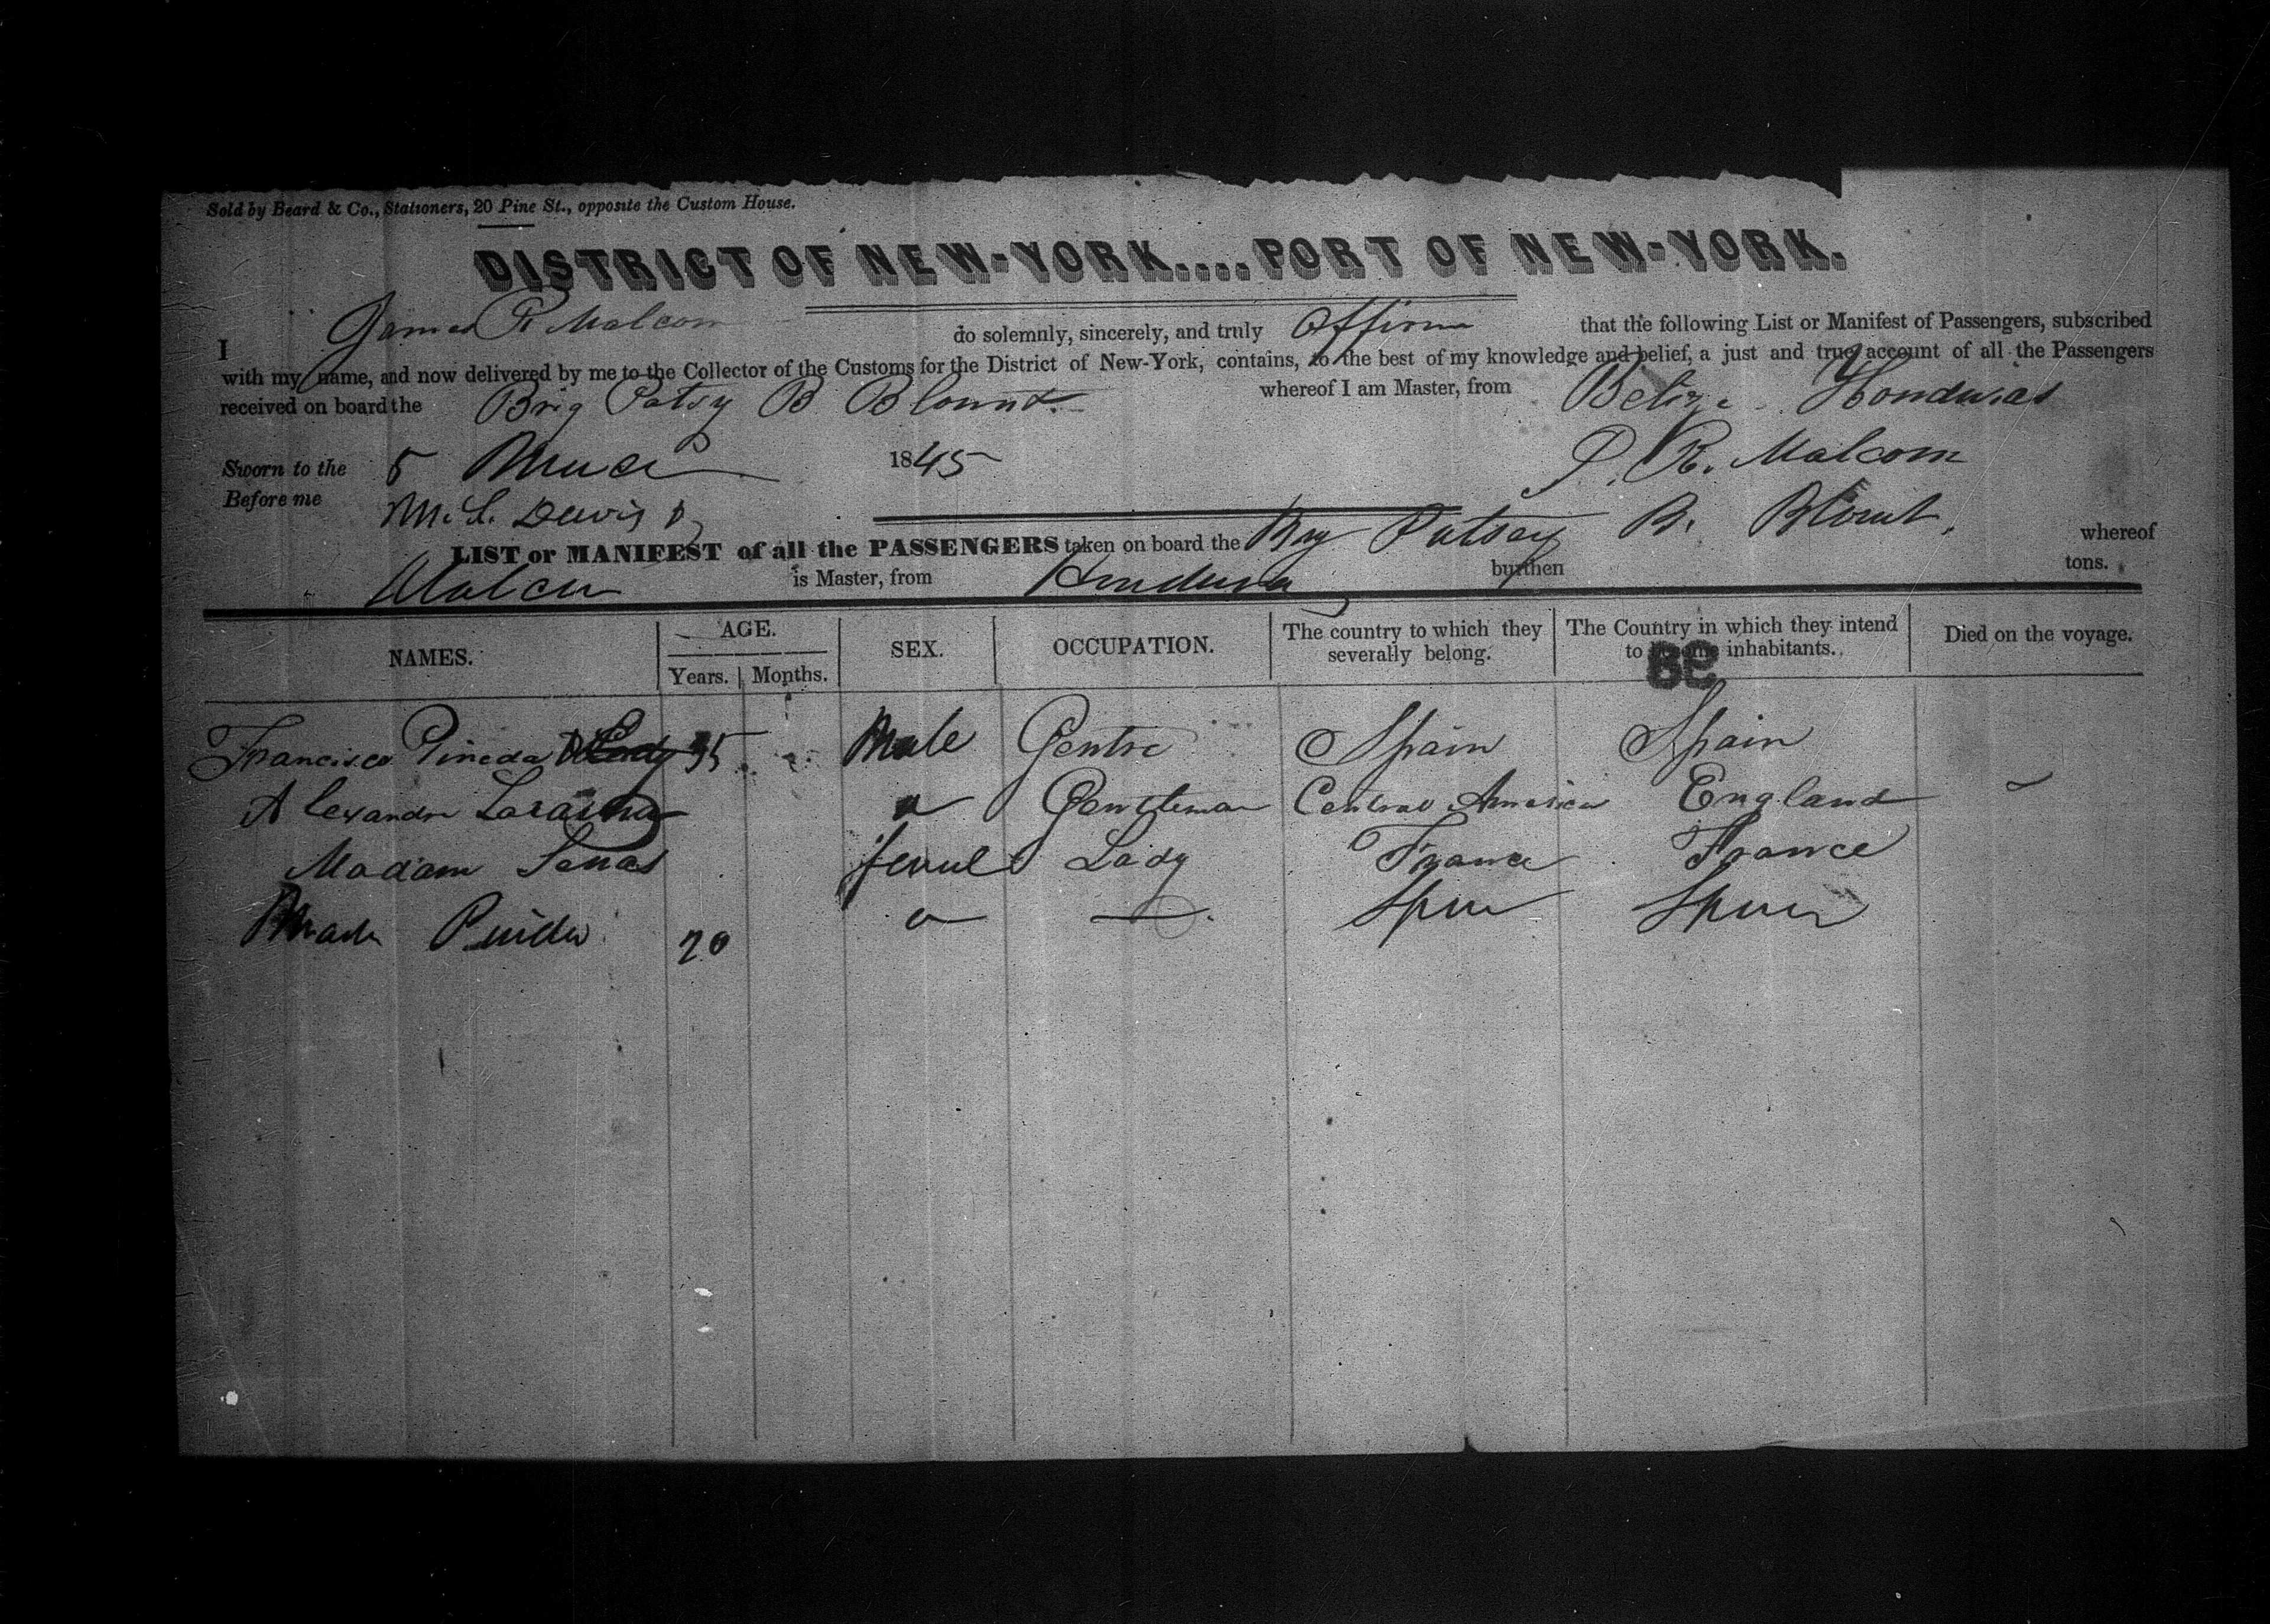 Sold by Beard & Co., Stationers, 20 Pine St., opposite the Custom House.
DISTRICT OF NEW-YORK....PORT OF NEW-YORK.
I James R Malcom do solemnly, sincerely, and truly Affirm that the following List or Manifest of Passengers, subscribed
with my name, and now delivered by me to the Collector of the Customs for the District of New-York, contains, to the best of my knowledge and belief, a just and true account of all the Passengers
received on board the Brig Patsy B Blount whereof I am Master, from Belize Honduras
Sworn to the 5 1845 J. R. Malcom
Before me
LIST or MANIFEST of all the PASSENGERS taken on board the Patsey B. Blount, whereof
Malcom is Master, from Honduras burthen tons.
NAMES. AGE. SEX. OCCUPATION. The country to which they severally belong. The Country in which they intend to become inhabitants. Died on the voyage.
Years. Months.
Francisco Pineda 35 Male Spain Spain
Alexandre Gentleman Central America England
Madam female Lady France France
20 Spain Spain